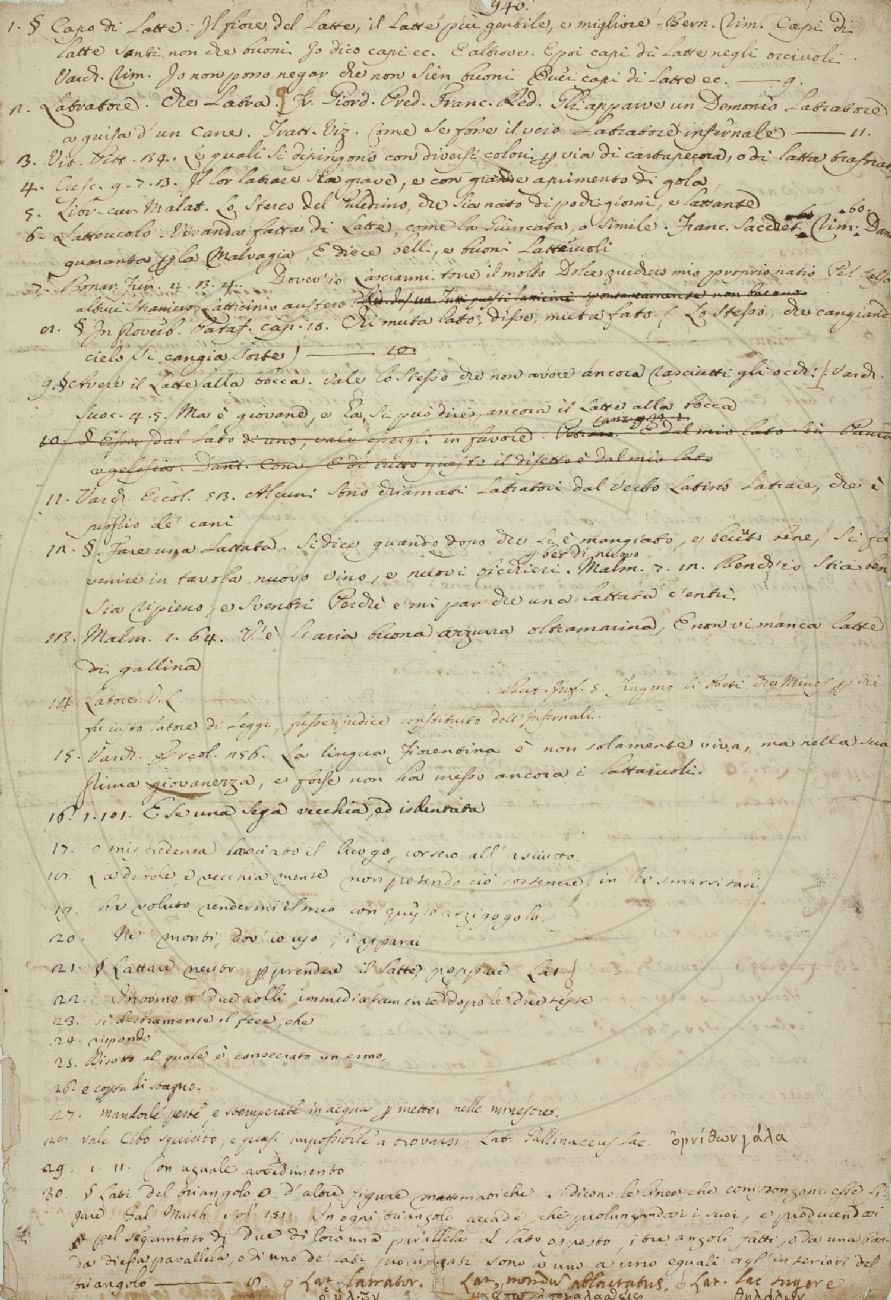 940.
1. § Capo di Latte: Il fiore del Latte, il Latte più gentile, e migliore. Bern. Rim. Capi di
latte santi, non che buoni. Io dico capi ec. E altrove. E poi capi di latte negli orcivoli.
Varch. Rim. Io non posso negar che non sien buoni Quei capi di latte ec. — 9.
2. Latratore. Che Latra. Fr. Giord. Pred. Franc. Red. Gli apparve un Demonio Latratore
a guisa d'un Cane. Tratt. Viz. Come se fosse il vero Latratore infernale — 11.
3. Vit. Pitt. 134. Le quali si dipingono con diversi colori per via di cartapecora, o di latta traforata
4. Cresc. 9. 7. 13. Il lor latrare sia grave, e con grande aprimento di gola
5. Libr. cur. Malat. Lo sterco del Puledrino, che sia nato di pochi giorni, e lattante
6. Latteruolo. Vivanda fatta di Latte, come la Giuncata, o simile. Franc. Sacchet. Rim. 60. Dan
quaranta per la Malvagia E diece belli, e buoni Latteruoli
7. Bonar. Fier. 4. 13. 4. Dover io lasciarmi torre il molto Dolce zucchero mio proprio natio Pel
altrui straniero Latticinio austero
8. § In proverb. Pataf. cap. 10. Chi muta lato, disse, muta fato (Lo stesso, che cangiand
cielo si cangia sorte) — 10
9. § Avere il Latte alla bocca. Vale lo stesso che non avere ancora rasciutti gli occhi. Varch.
Suoc. 4. 5. Ma è giovane, e ha, si può dire, ancora il latte alla bocca
10. § Esser dal lato di uno, vale essergli in favore. Petrarc. canz. E dal mio lato sia Paura
e gelosia. Dant. Conv. E di tutto questo il difetto è dal mio lato
11. Varch. Ercol. 58. Alcuni sono chiamati Latratori dal verbo Latino Latrare, che è
proprio de' cani
12. §. Fare una Lattata. Si dice quando dopo che si è mangiato, e beuto bene, si fa
venire in tavola nuovo vino, e nuovi bicchieri per di nuovo. Malm. 7. 12. Bench'io stia ben
sia ripieno, e sventri Perchè e' mi par che una lattata c'entri.
13. Malm. 1. 64. V'è l'aria buona azzurra oltramarina, E non vi manca latte
di gallina
14. Latore. V. L. But. Inf. 5. Fingono li Poeti che Minos per che
fu iusto latore di leggi, fusse iudice constituto dell'infernali.
15. Varch. Ercol. 256. La lingua Fiorentina è non solamente viva, ma nella sua
prima giovanezza, e forse non ha messo ancora i lattaiuoli.
16. 1. 101. E se una sega vecchia, ed isdentata
17. o miscredenza lasciato il luogo, corsero all'asciutto.
18. La debole, e vecchia mente non potendo ciò sostenere, in lei smarritasi
19. ha voluto rendermi il mio con questi arzigogolo.
20. Ne' morbi, dov'io uso, i' apparai
21. § Lattare neutr. per prender il latte, poppare Lat.
22. Intorno a' due colli immediatamente dopo le due teste
23. si destramente il fece, che
24. rispondo
25. Bisotto al quale è consecrato un ermo,
26. e coppa di stagno.
27. mandorle peste e stemperate in acqua per metter nelle minestre.
28. vale Cibo squisito, e quasi impossibile a trovarsi. Lat. Gallinaceus lac. ὀρνίθων γάλα
29. 1. 11. Con uguale avvedimento
30. § Lati del triangolo o d'altre figure mattematiche si dicono le linee che compongono esse fi-
gure. Gal. Macch. Sol. 151. In ogni triangolo accade, che prolungandovi i suoi, e producendovi
pel segamento di due di loro una parallela al lato opposto, i tre angoli fatti o da una ban-
da di essa parallela, o di uno de' lati prolungati sono a uno a uno eguali agl'interiori del
triangolo — 8. Lat. latrator. Lat. nondum ablactatus. Lat. lac sugere
θηλάζειν